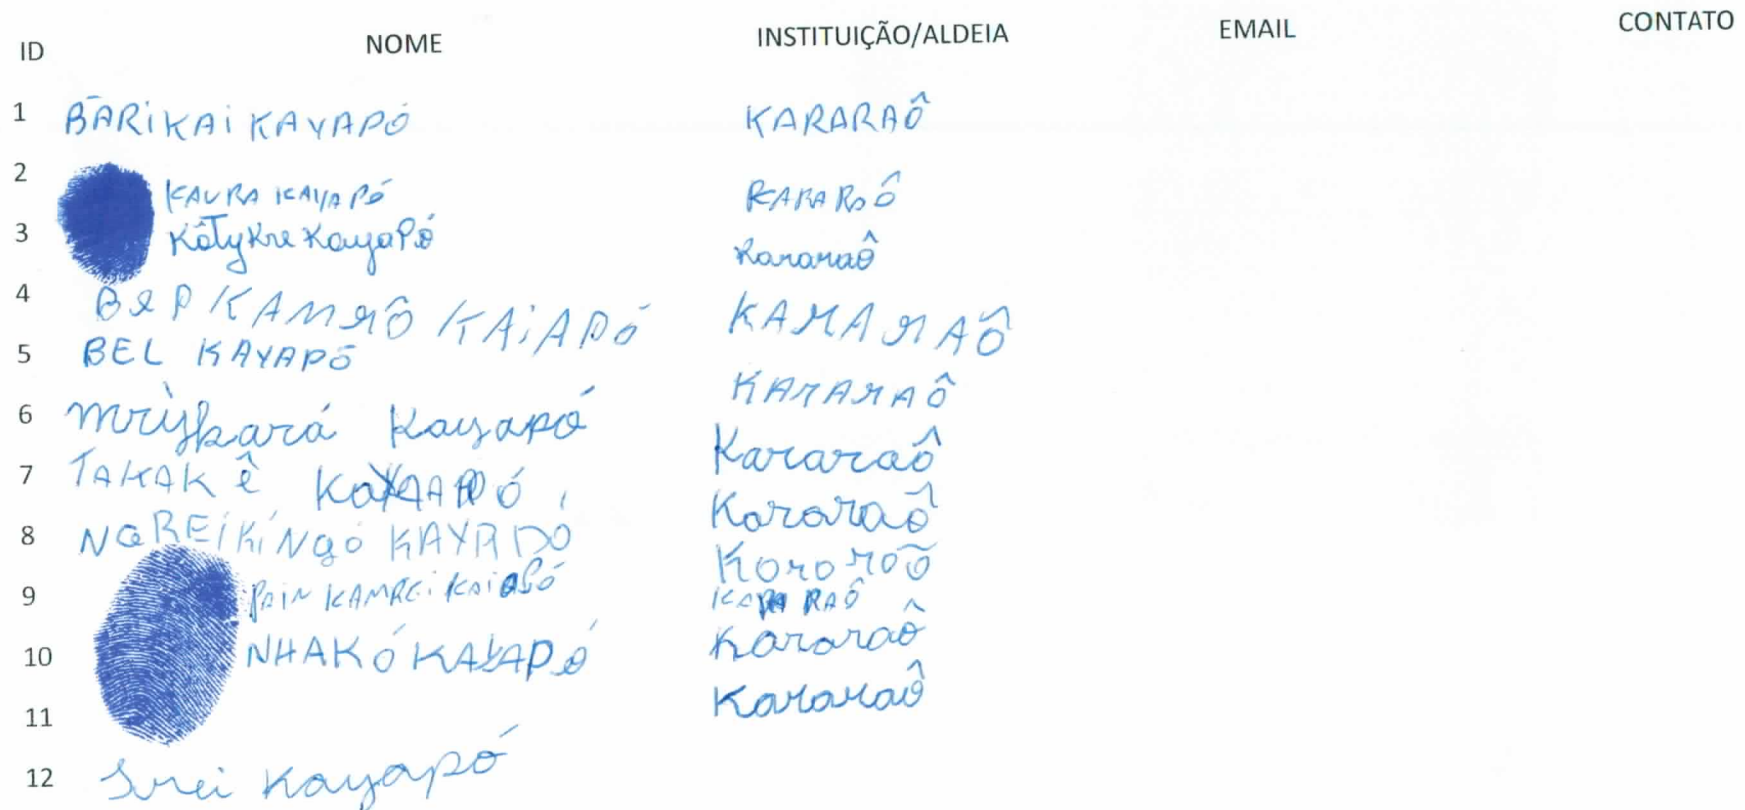 ID NOME INSTITUIÇÃO/ALDEIA EMAIL CONTATO
1 BĀRIKAI KAYAPÓ KARARAÔ
2 KAURA KAYAPÓ KARARAÔ
3 Kôtykre KayaPó Kararaô
4 BEP KAMRÔ KAIAPÓ KARARAÔ
5 BEL KAYAPÓ KARARAÔ
6 Kayapó Kararaô
7 TAKAKÊ KAYAPÓ Kararaô
8 NGREIKINGÓ KAYAPÓ Kararaõ
9 KAMREI KAIAPÓ KARARAÔ
10 NHAKÓ KAYAPÓ Kararaô
11 Kararaô
12 Kayapó